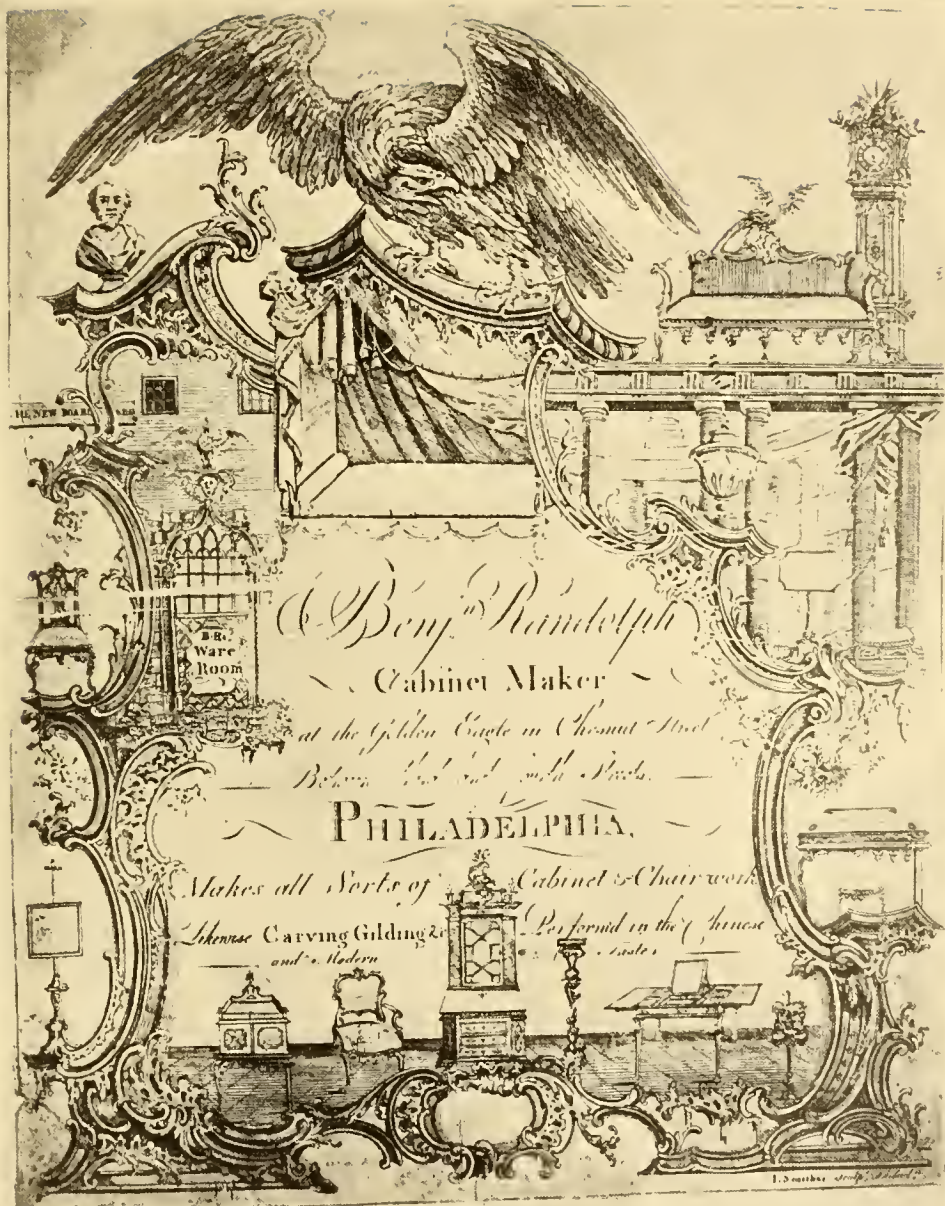 THE NEW BOARD
B·R·
Ware
Room
Benjn Randolph
Cabinet Maker
at the Golden Eagle in Chesnut Street
PHILADELPHIA,
Makes all Sorts of Cabinet & Chairwork
Likewise Carving Gilding &c Perform'd in the Chinese
and Modern Taste
I. Smither Sculp.